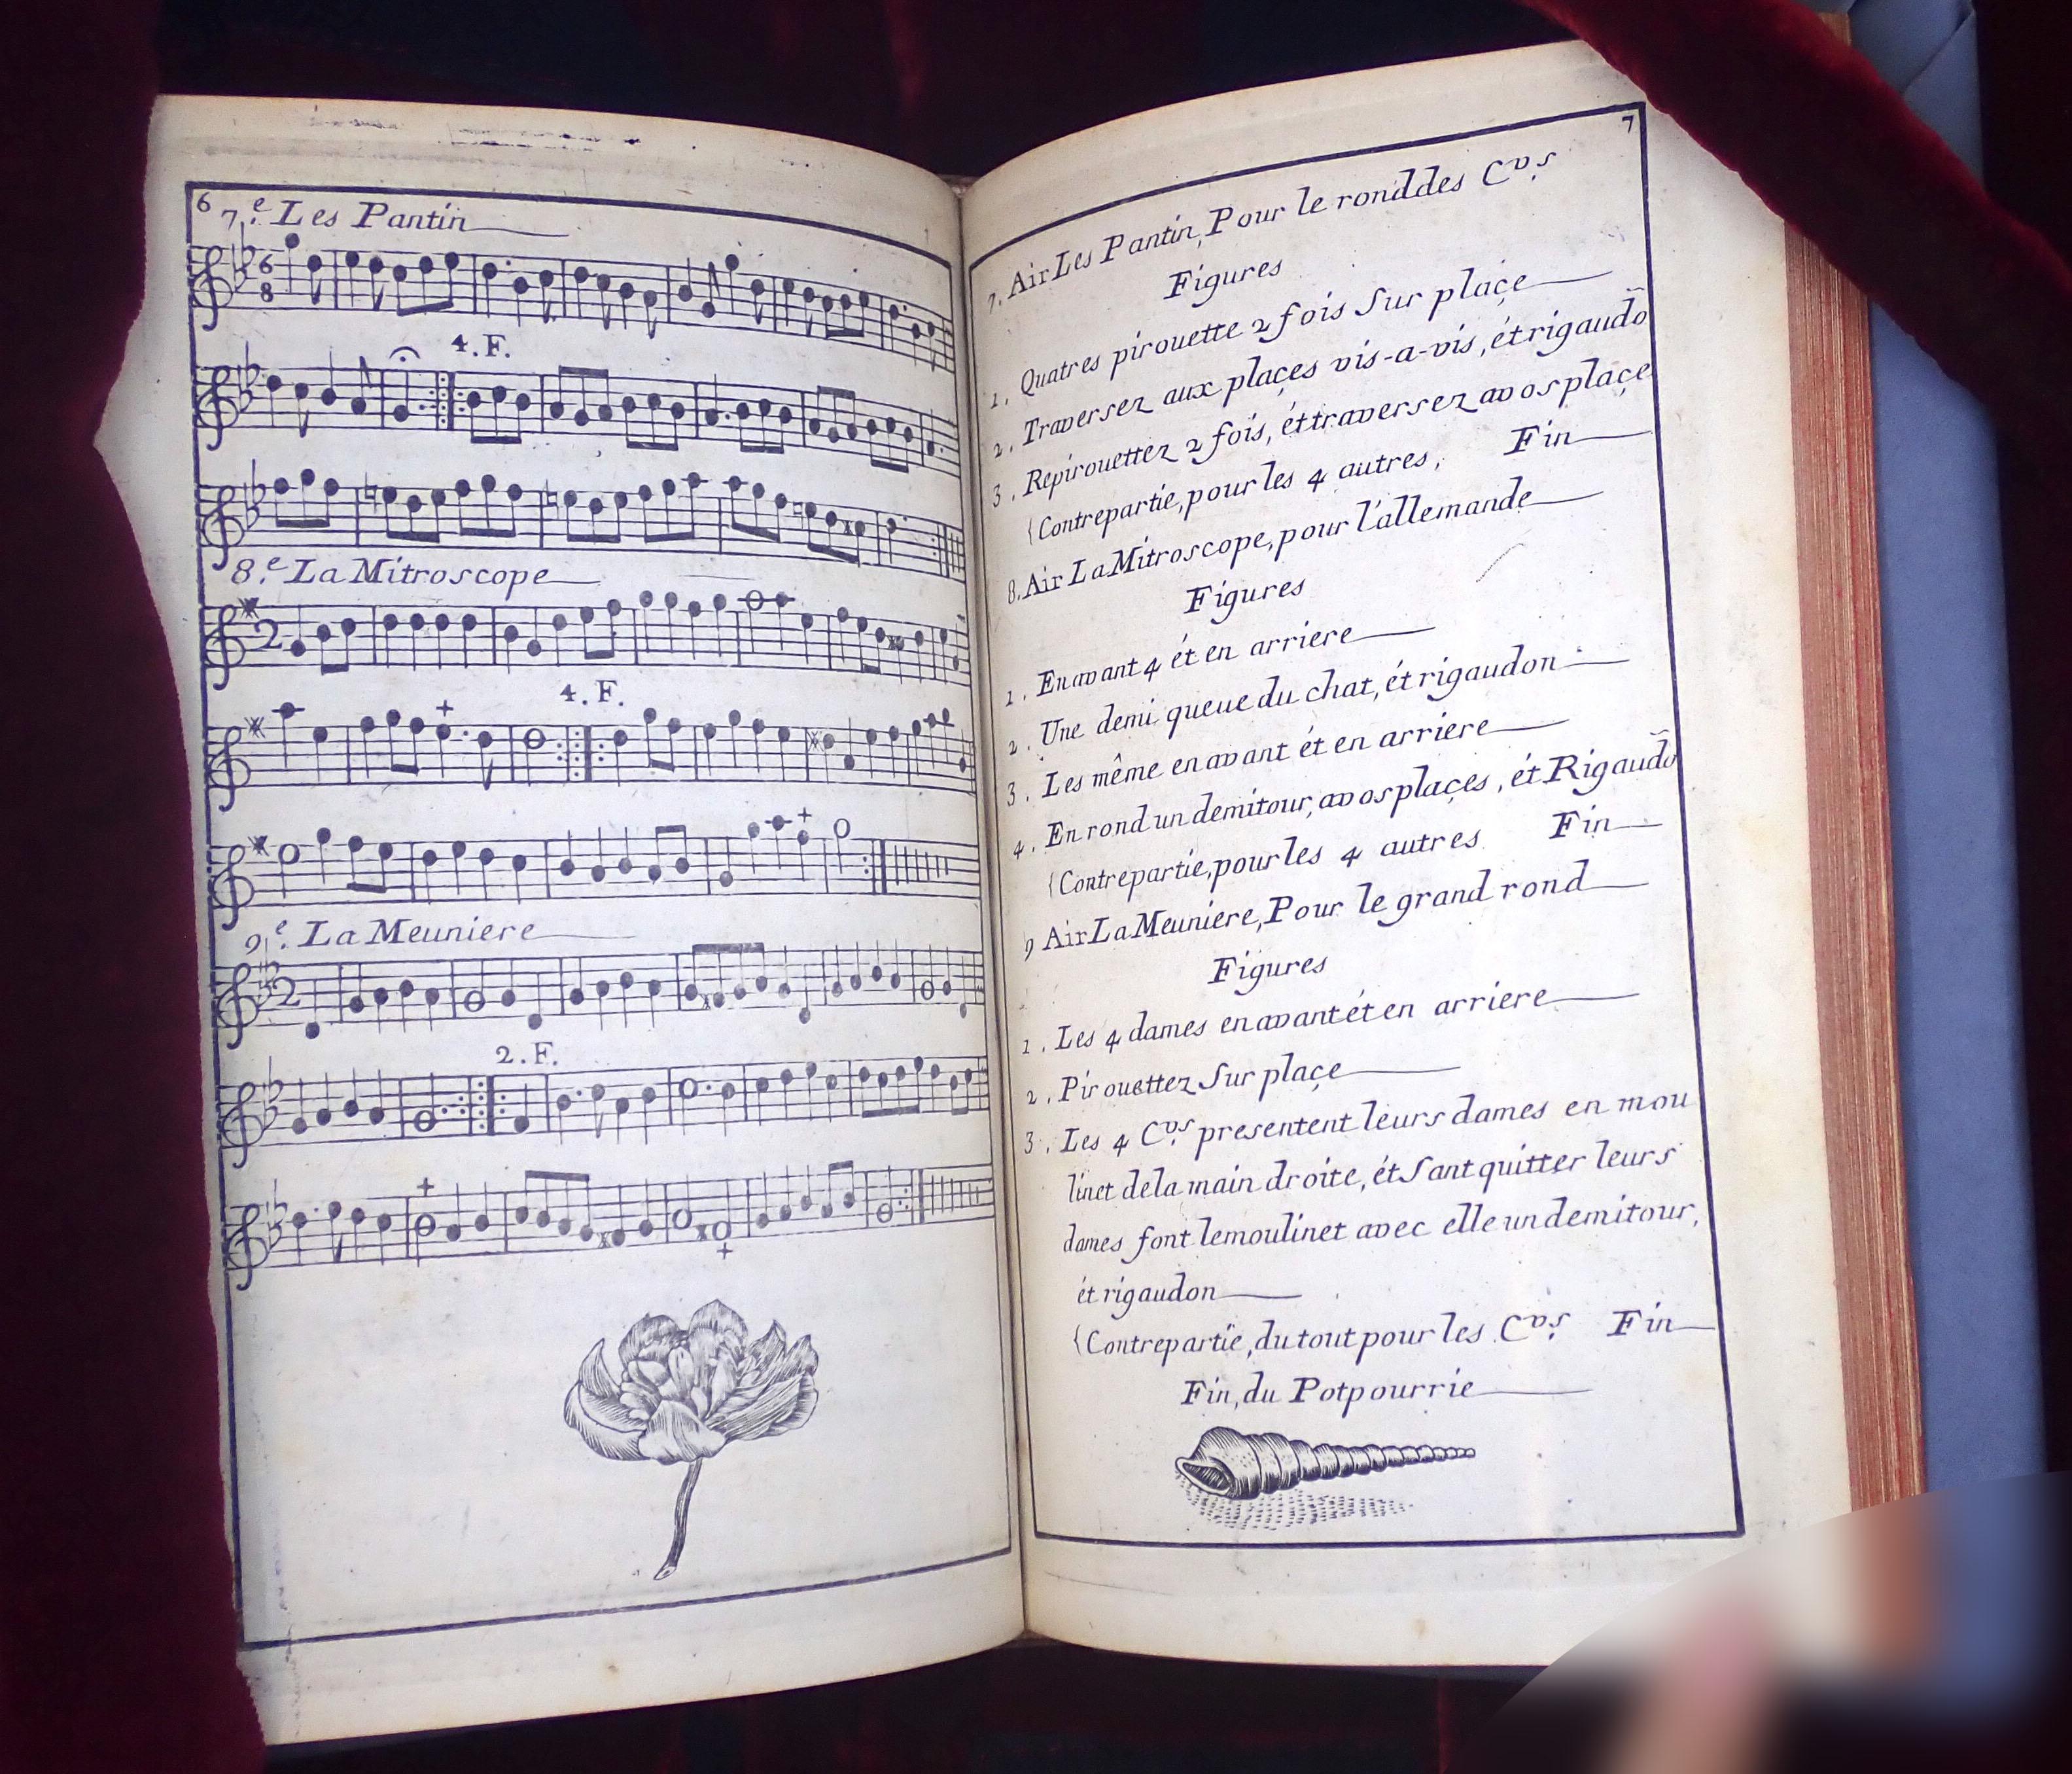 6
7.e Les Pantin
6
8
4. F.
8.e La Mitroscope
2
4. F.
9.e La Meuniere
2
2. F.
7
7. Air Les Pantin, Pour le rond des C.vs
Figures
1. Quatres pirouette 2 fois Sur plaçe
2. Traversez aux plaçes vis-a-vis, ét rigaudõ
3. Repirouettez 2 fois, ét traversez a vos plaçe
{Contrepartie, pour les 4 autres, Fin
8. Air La Mitroscope, pour l'allemande
Figures
1. En avant 4 ét en arriere
2. Une demi queue du chat, ét rigaudon
3. Les même en avant ét en arriere
4. En rond un demitour, a vos plaçes, ét Rigaudõ
{Contrepartie, pour les 4 autres Fin
9 Air La Meuniere, Pour le grand rond
Figures
1. Les 4 dames en avant ét en arriere
2. Pirouettez Sur plaçe
3. Les 4 C.vs presentent leurs dames en mou
linet de la main droite, ét Sant quitter leurs
dames font le moulinet avec elle un demitour,
ét rigaudon
{Contrepartie, du tout pour les C.vs Fin
Fin, du Potpourrie